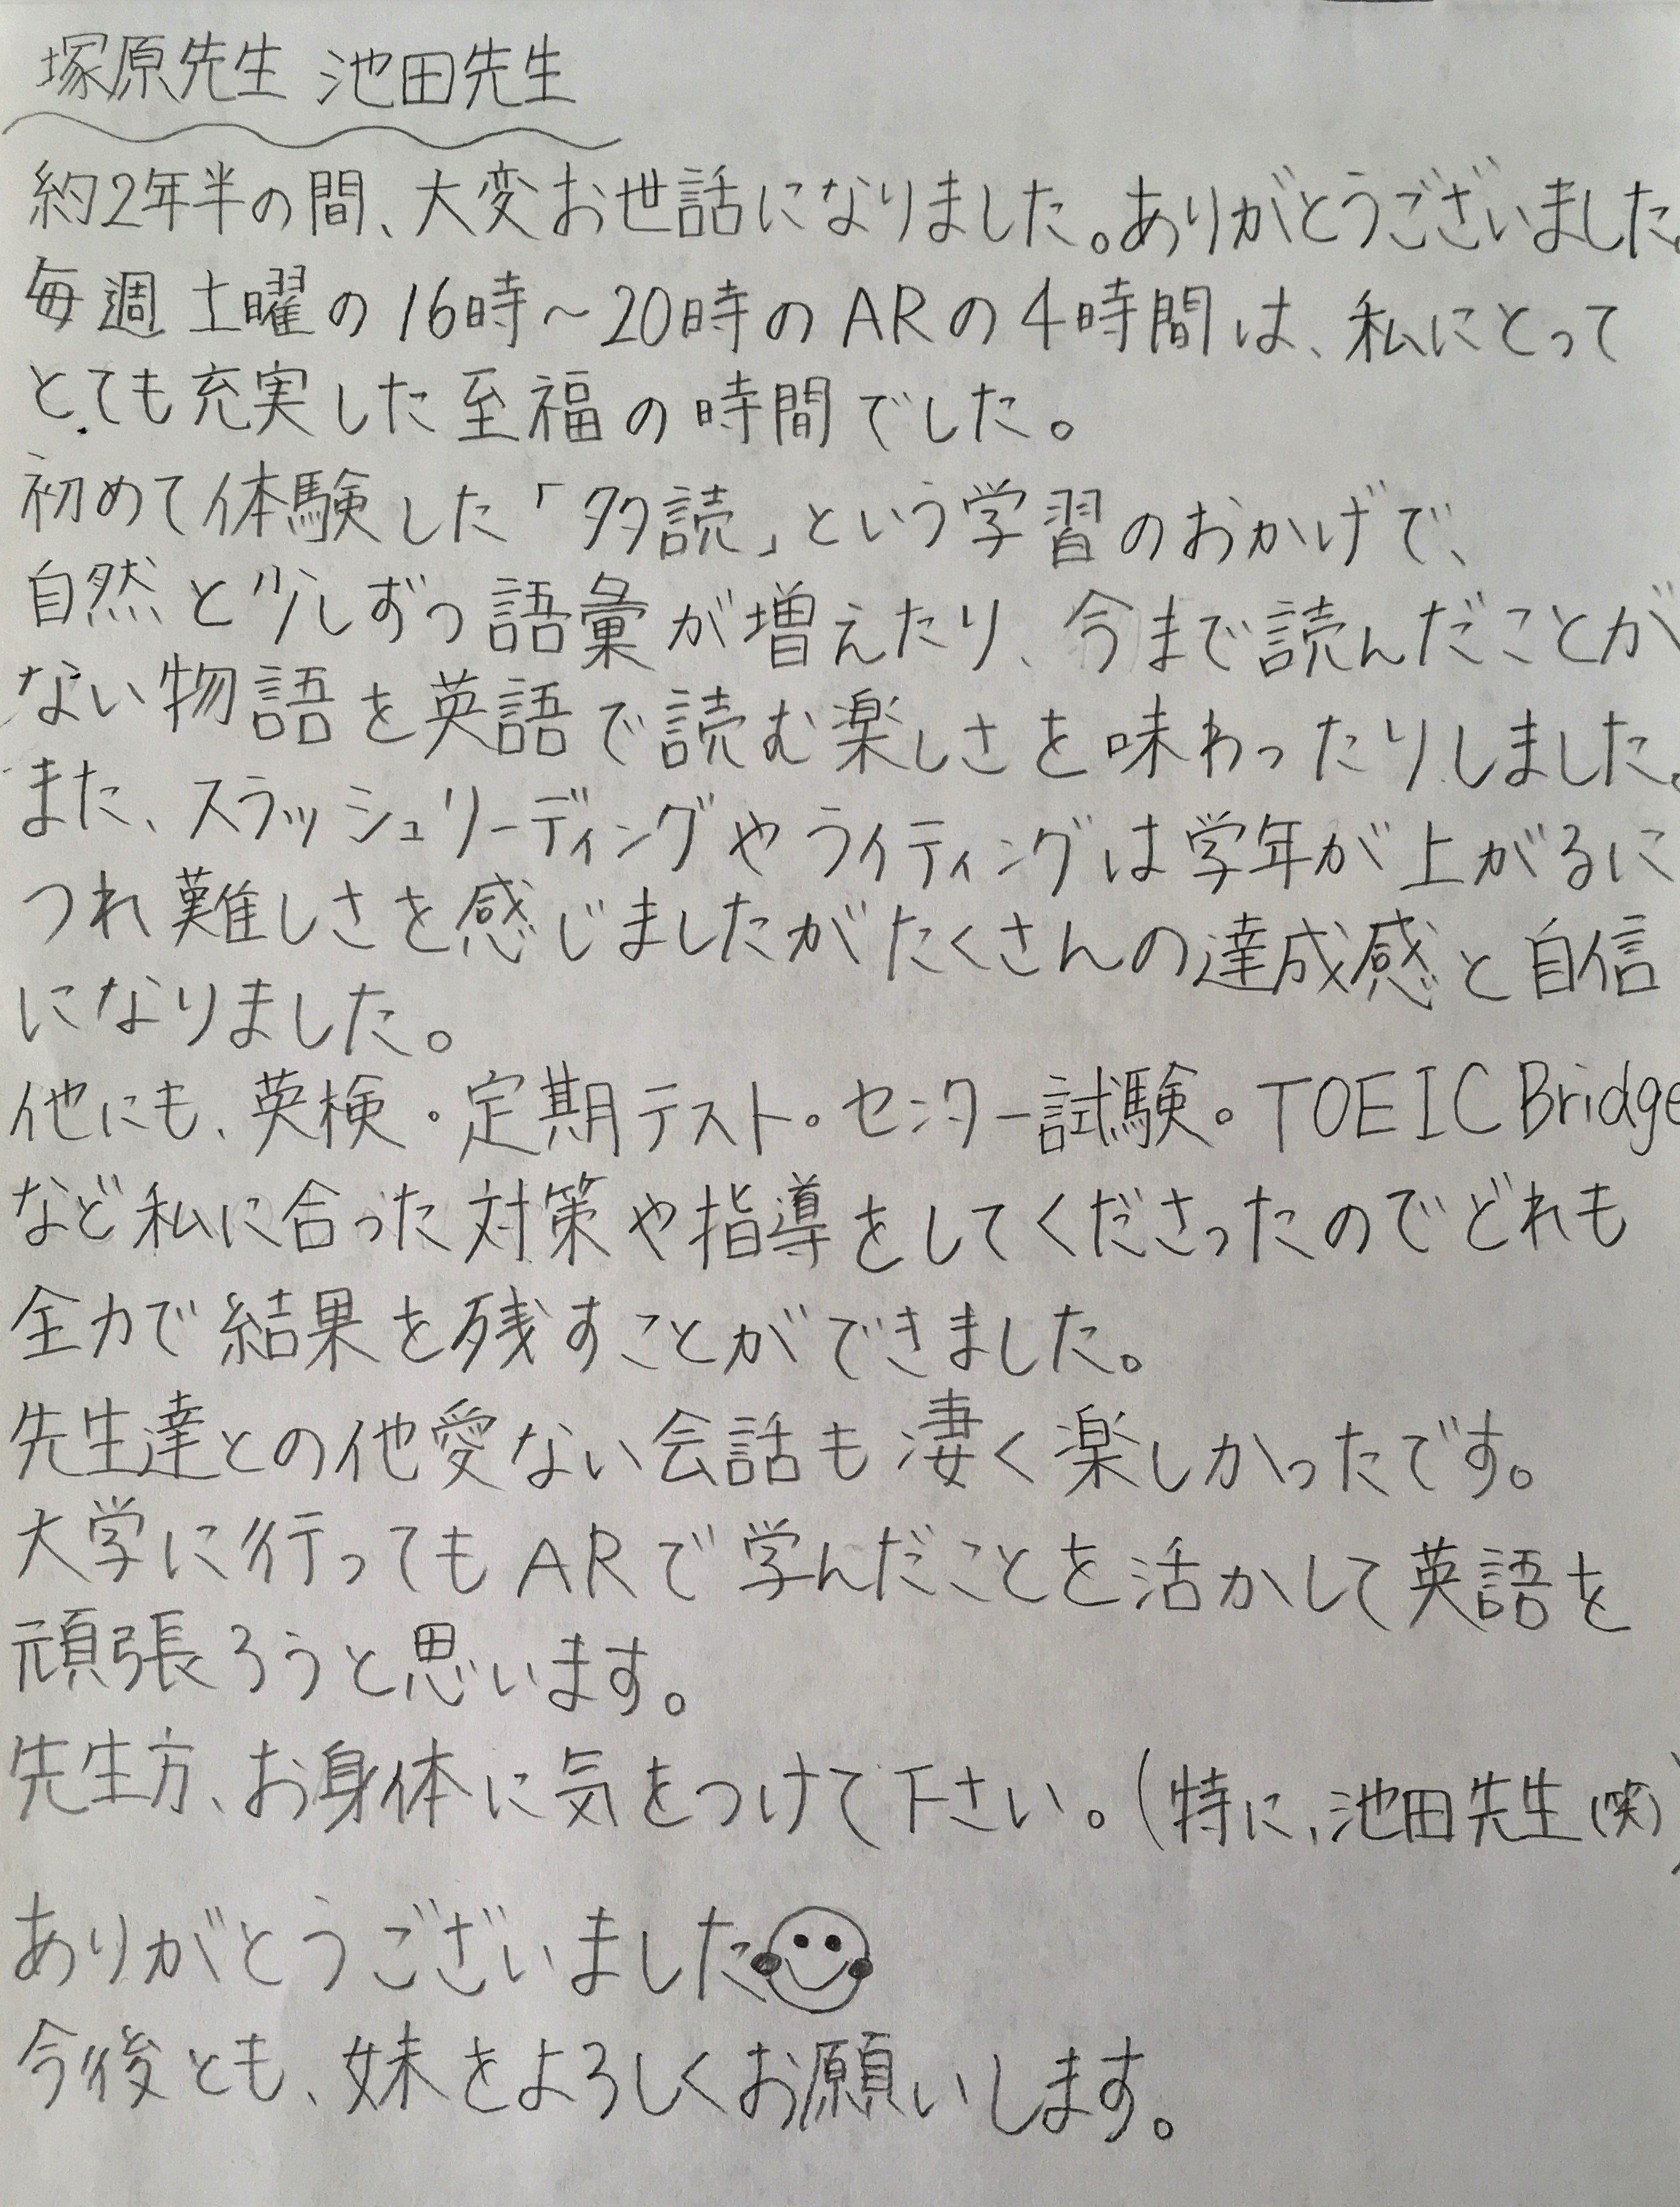 塚原先生 池田先生
約2年半の間、大変お世話になりました。ありがとうございました。
毎週土曜の16時～20時のARの4時間は、私にとって
とても充実した至福の時間でした。
初めて体験した「多読」という学習のおかげで、
自然と少しずつ語彙が増えたり、今まで読んだことが
ない物語を英語で読む楽しさを味わったりしました。
また、スラッシュリーディングやライティングは学年が上がるに
つれ難しさを感じましたがたくさんの達成感と自信
になりました。
他にも、英検・定期テスト・センター試験・TOEIC Bridge
など私に合った対策や指導をしてくださったのでどれも
全力で結果を残すことができました。
先生達との他愛ない会話も凄く楽しかったです。
大学に行ってもARで学んだことを活かして英語を
頑張ろうと思います。
先生方、お身体に気をつけて下さい。(特に、池田先生(笑))
ありがとうございました
今後とも、妹をよろしくお願いします。